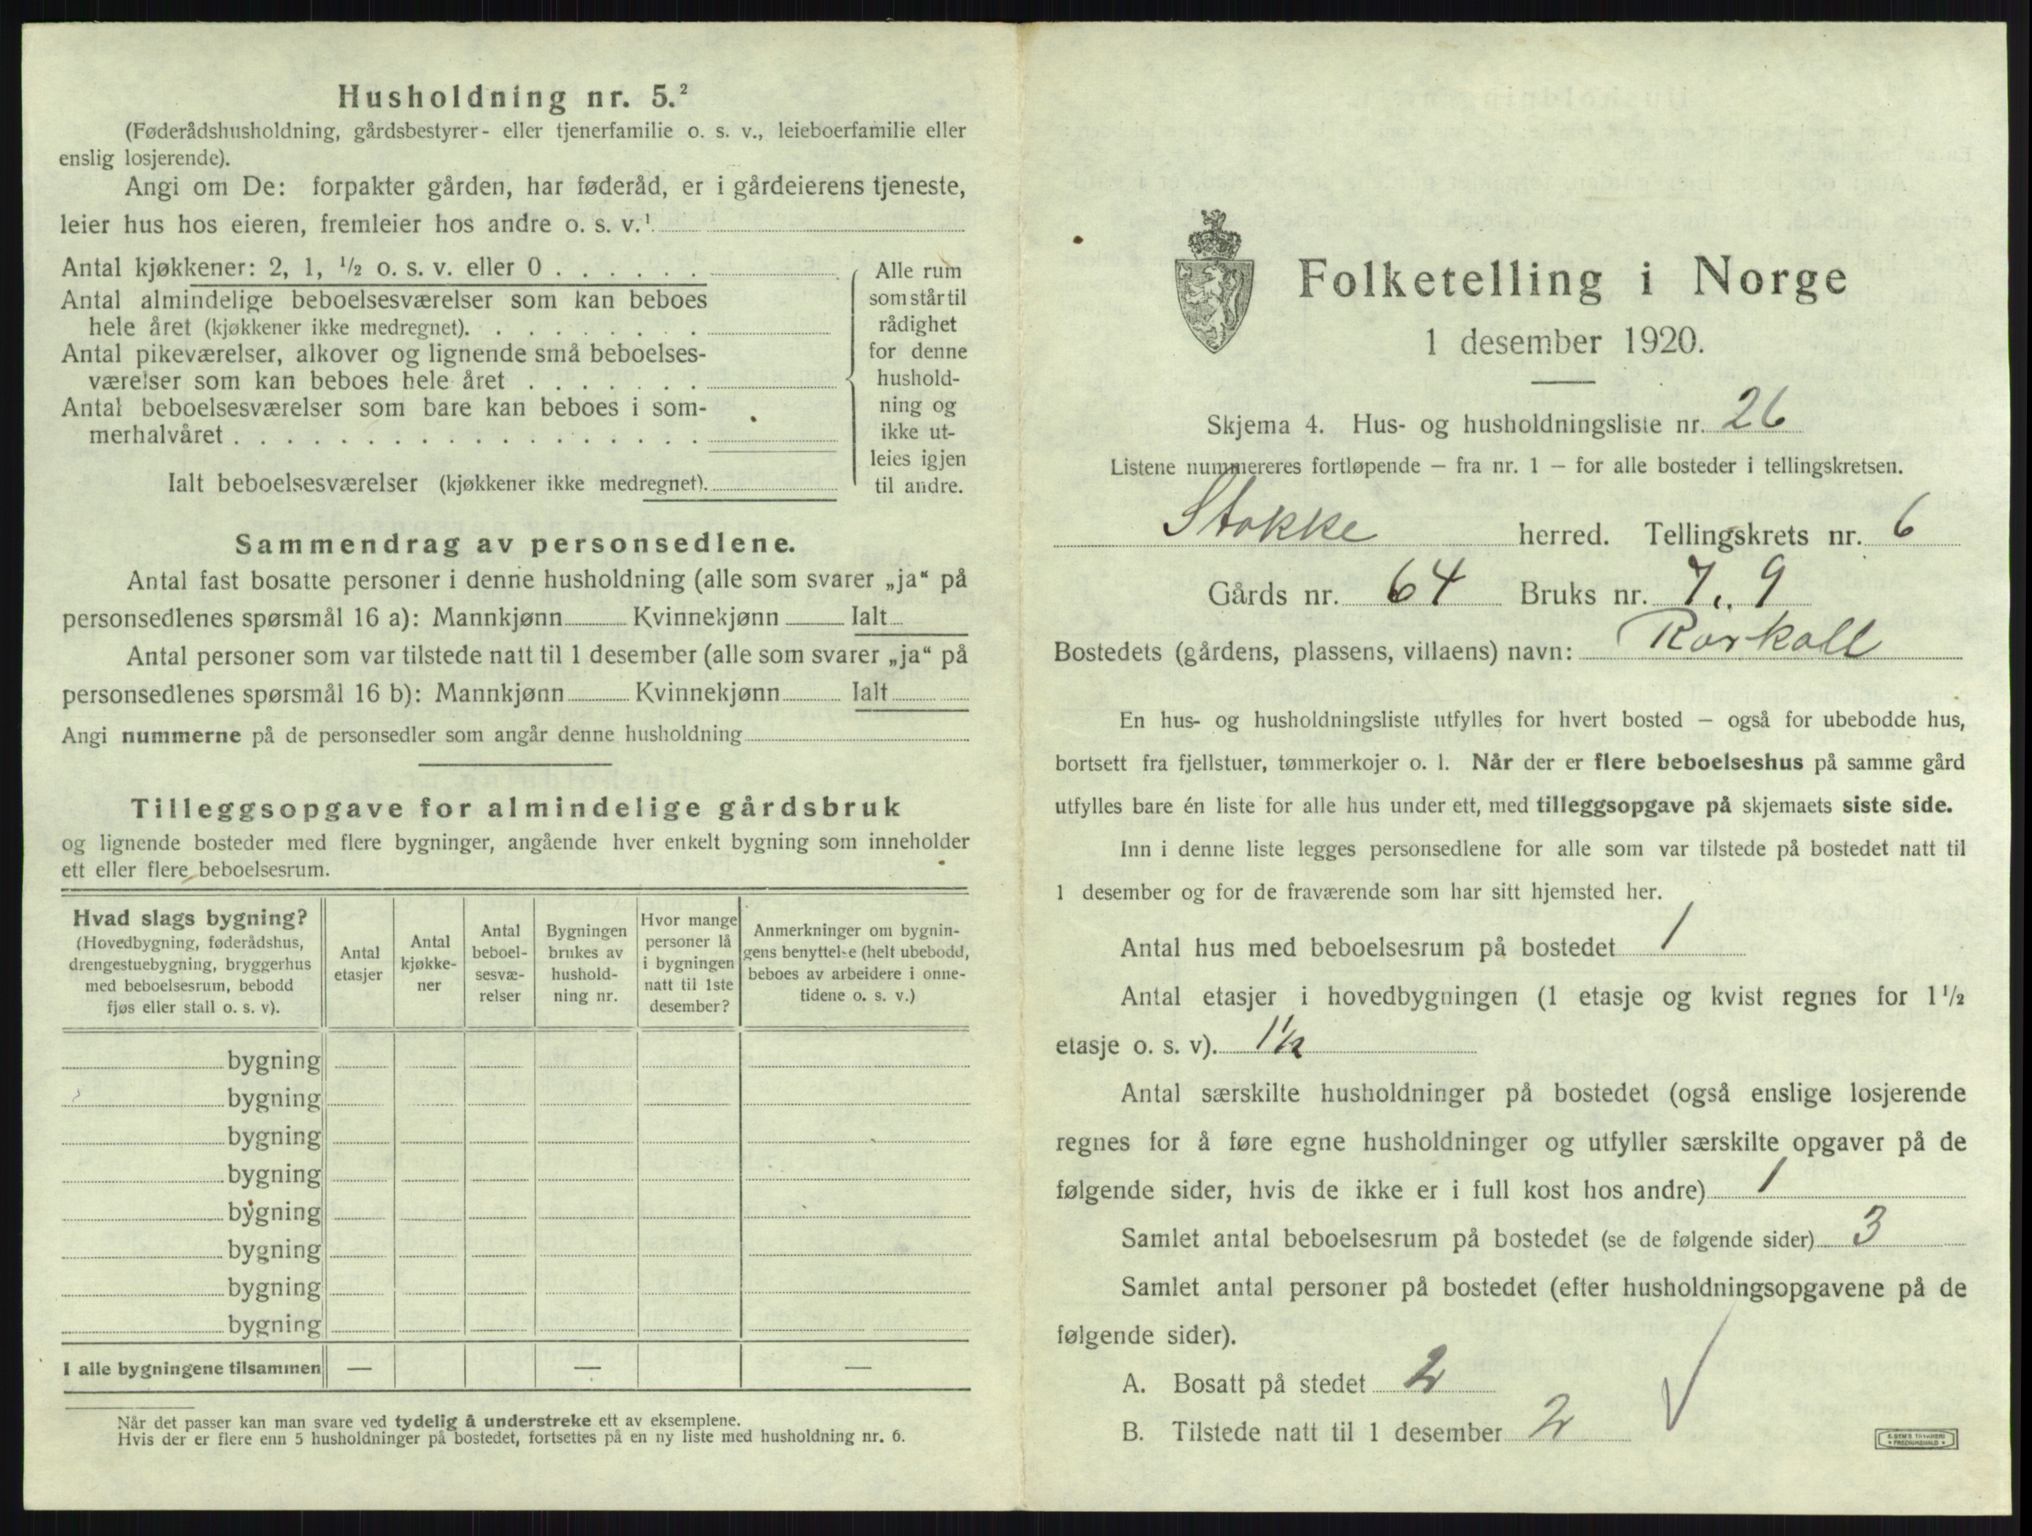 Husholdning nr. 5.²
(Føderådshusholdning, gårdsbestyrer- eller tjenerfamilie o. s. v., leieboerfamilie eller
enslig losjerende).
Angi om De: forpakter gården, har føderåd, er i gårdeierens tjeneste,
leier hus hos eieren, fremleier hos andre o. s. v.¹
Antal kjøkkener: 2, 1, ½ o. s. v. eller 0 . . . . . .
Antal almindelige beboelsesværelser som kan beboes
hele året (kjøkkener ikke medregnet). . . . . . . . .
Antal pikeværelser, alkover og lignende små beboelses-
værelser som kan beboes hele året . . . . . . .
Antal beboelsesværelser som bare kan beboes i som-
merhalvåret . . . . . . . . . . . . . . . . . .
Ialt beboelsesværelser (kjøkkener ikke medregnet).
Alle rum
som står til
rådighet
for denne
hushold-
ning og
ikke ut-
leies igjen
til andre.
Sammendrag av personsedlene.
Antal fast bosatte personer i denne husholdning (alle som svarer „ja“ på
personsedlenes spørsmål 16 a): Mannkjønn Kvinnekjønn Ialt
Antal personer som var tilstede natt til 1 desember (alle som svarer „ja“ på
personsedlenes spørsmål 16 b): Mannkjønn Kvinnekjønn Ialt
Angi nummerne på de personsedler som angår denne husholdning
Tilleggsopgave for almindelige gårdsbruk
og lignende bosteder med flere bygninger, angående hver enkelt bygning som inneholder
ett eller flere beboelsesrum.
Hvad slags bygning?
(Hovedbygning, føderådshus,
drengestuebygning, bryggerhus
med beboelsesrum, bebodd
fjøs eller stall o. s. v).
Antal
etasjer
Antal
kjøkke-
ner
Antal
beboel-
sesvæ-
relser
Bygningen
brukes av
hushold-
ning nr.
Hvor mange
personer lå
i bygningen
natt til 1ste
desember?
Anmerkninger om bygnin-
gens benyttelse (helt ubebodd,
beboes av arbeidere i onne-
tidene o. s. v.)
bygning
bygning
bygning
bygning
bygning
bygning
bygning
bygning
I alle bygningene tilsammen — — —
Når det passer kan man svare ved tydelig å understreke ett av eksemplene.
Hvis der er flere enn 5 husholdninger på bostedet, fortsettes på en ny liste med husholdning nr. 6.
Folketelling i Norge
1 desember 1920.
Skjema 4. Hus- og husholdningsliste nr. 26
Listene nummereres fortløpende – fra nr. 1 – for alle bosteder i tellingskretsen.
Stokke herred. Tellingskrets nr. 6
Gårds nr. 64 Bruks nr. 7, 9
Bostedets (gårdens, plassens, villaens) navn: Rørkoll
En hus- og husholdningsliste utfylles for hvert bosted – også for ubebodde hus,
bortsett fra fjellstuer, tømmerkojer o. l. Når der er flere beboelseshus på samme gård
utfylles bare én liste for alle hus under ett, med tilleggsopgave på skjemaets siste side.
Inn i denne liste legges personsedlene for alle som var tilstede på bostedet natt til
1 desember og for de fraværende som har sitt hjemsted her.
Antal hus med beboelsesrum på bostedet 1
Antal etasjer i hovedbygningen (1 etasje og kvist regnes for 1½
etasje o. s. v). 1½
Antal særskilte husholdninger på bostedet (også enslige losjerende
regnes for å føre egne husholdninger og utfyller særskilte opgaver på de
følgende sider, hvis de ikke er i full kost hos andre) 1
Samlet antal beboelsesrum på bostedet (se de følgende sider) 3
Samlet antal personer på bostedet (efter husholdningsopgavene på de
følgende sider).
A. Bosatt på stedet 2
B. Tilstede natt til 1 desember 2